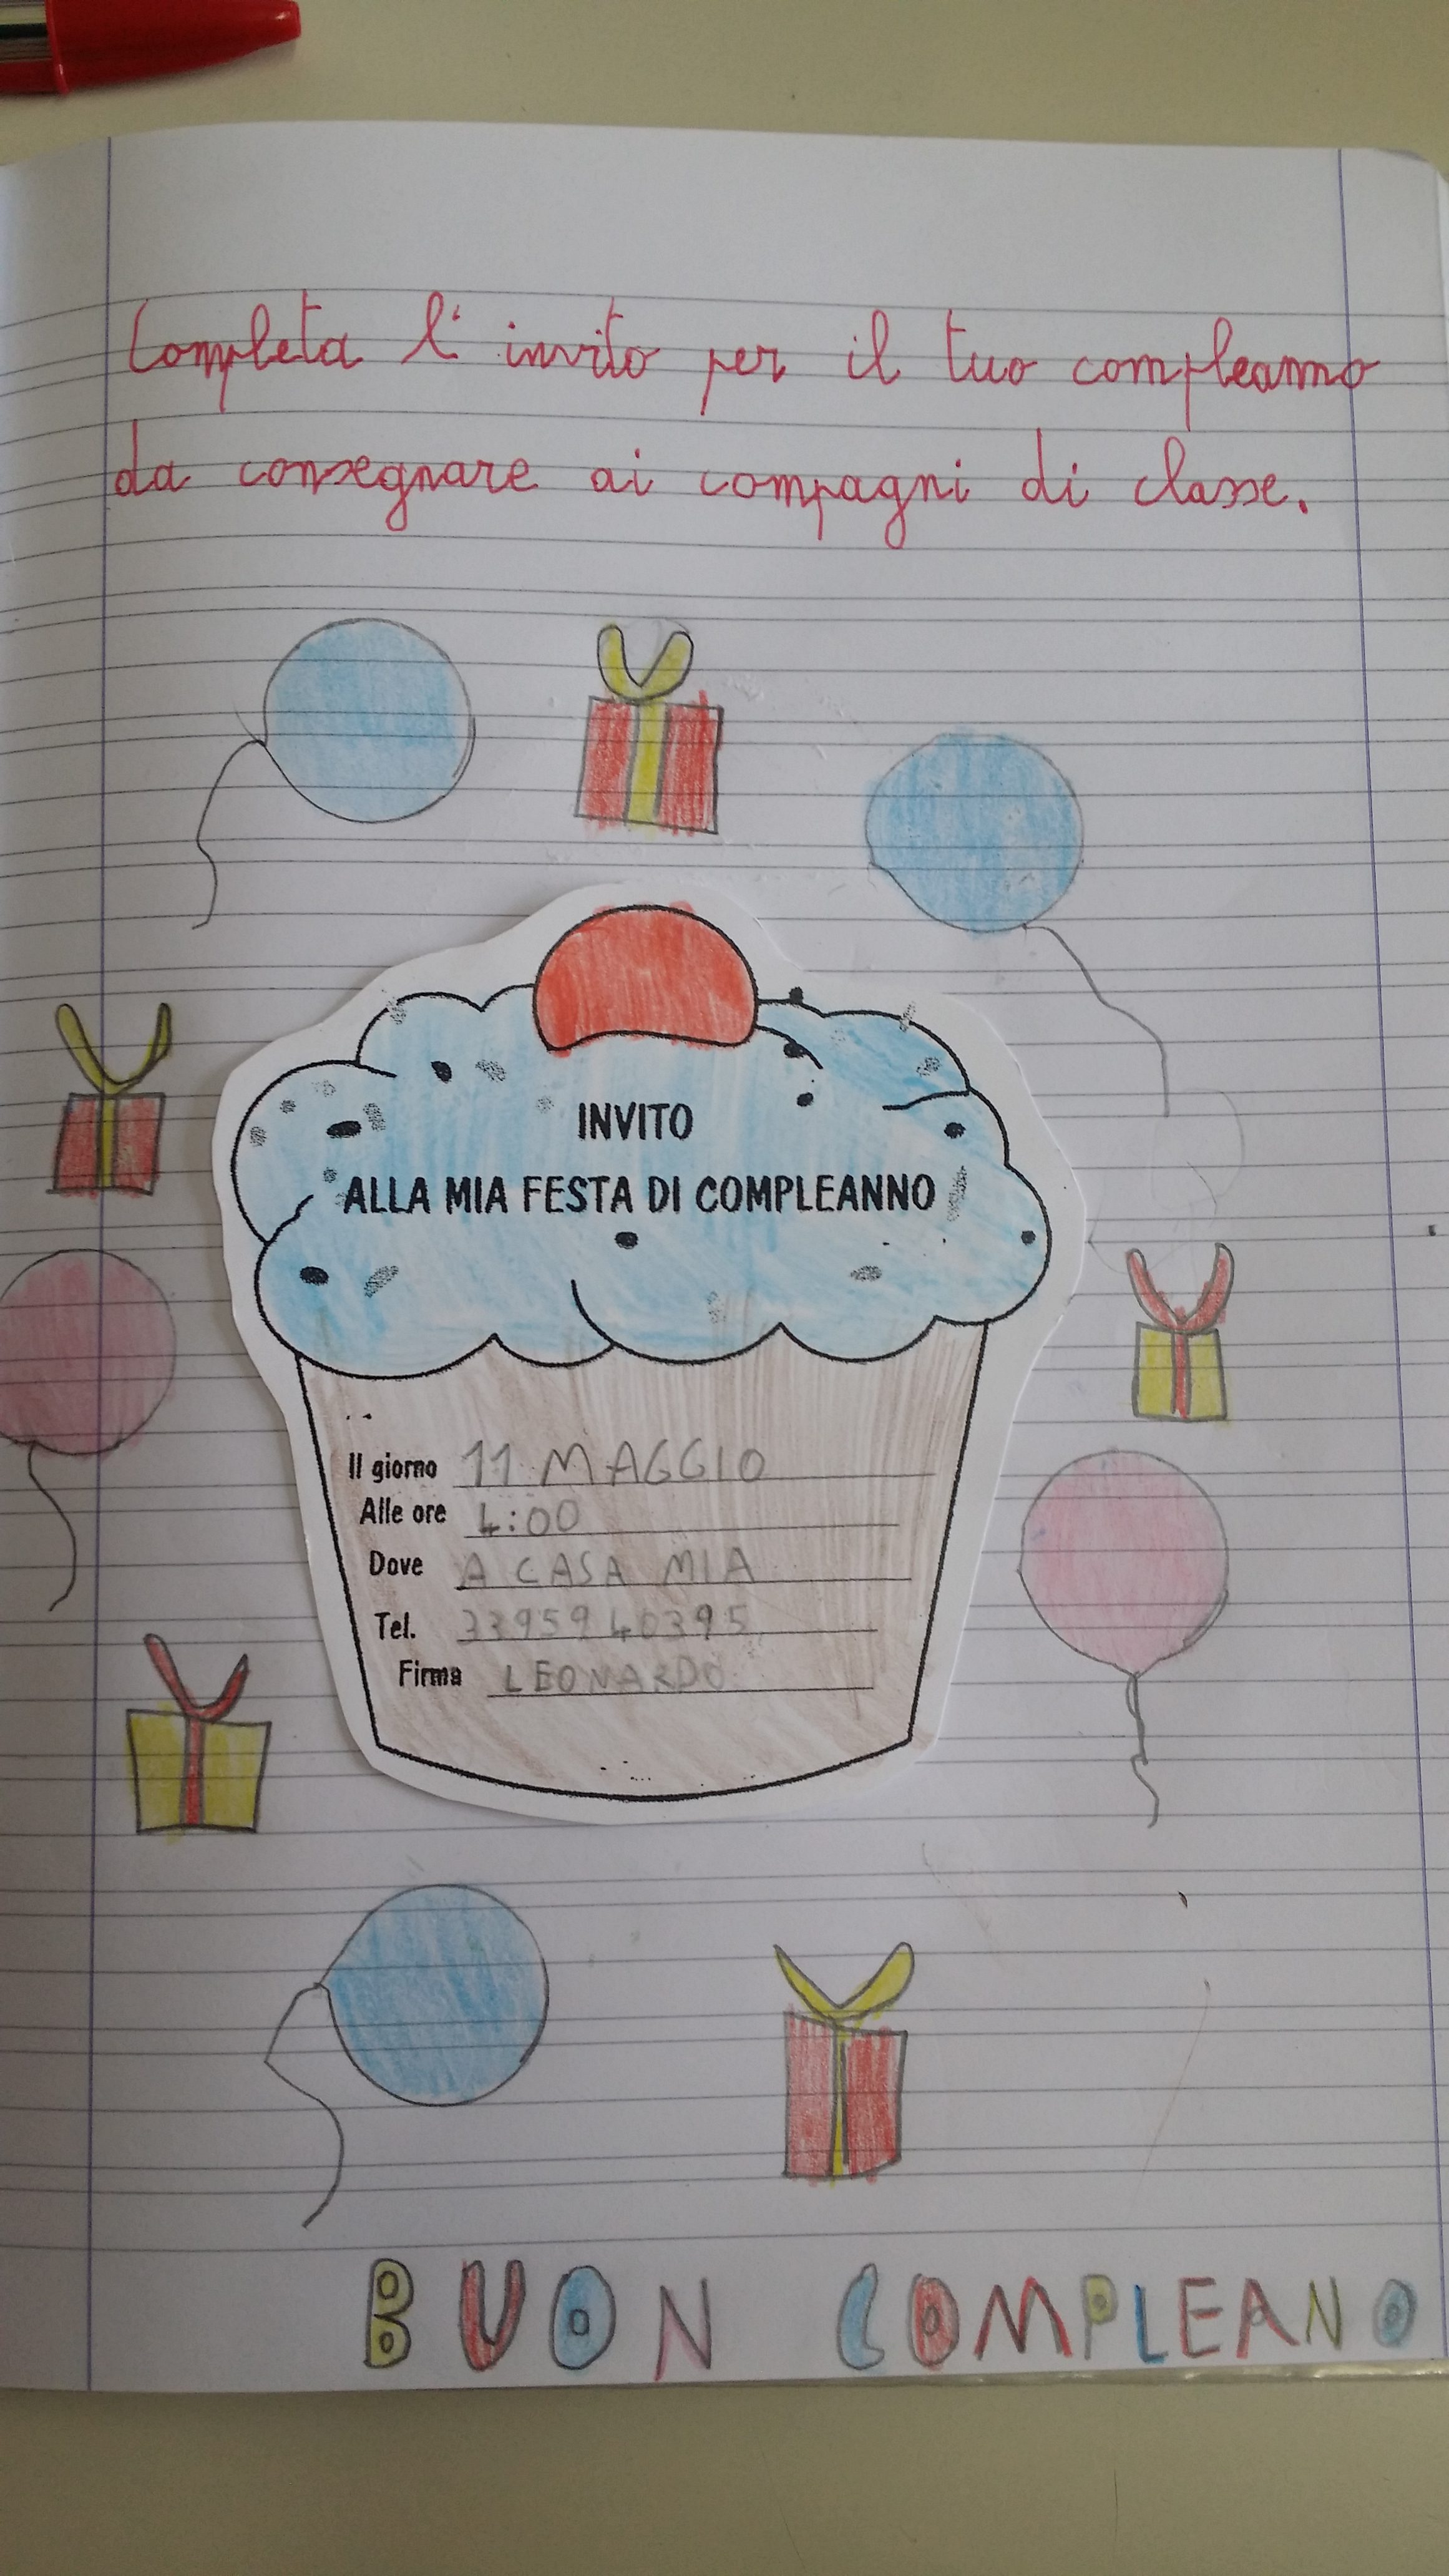 Completa l'invito per il tuo compleanno
da consegnare ai compagni di classe.
INVITO
ALLA MIA FESTA DI COMPLEANNO
Il giorno 11 MAGGIO
Alle ore 4:00
Dove A CASA MIA
Tel. 3395940395
Firma LEONARDO
BUON COMPLEANO